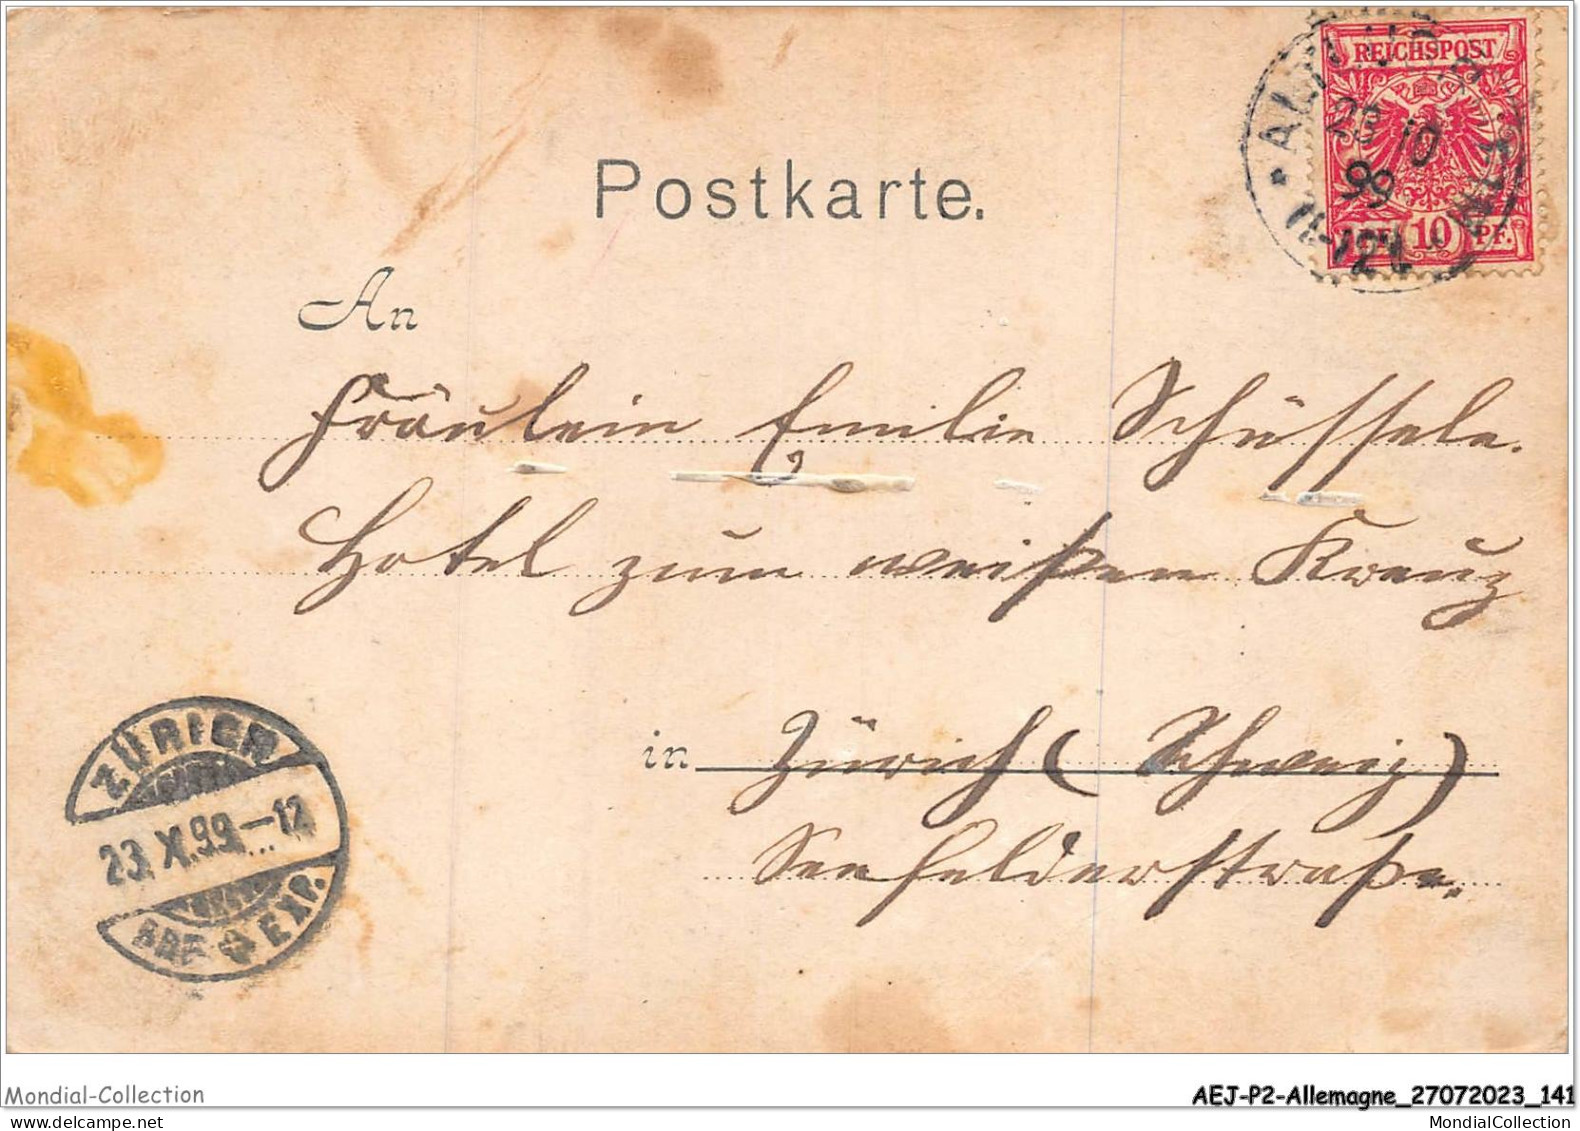 REICHSPOST
23 10
99
11-12V.
10 PF.
Postkarte.
An
Fräulein Emilie Schüssele.
Hotel zum weißen Kreuz
in Zürich (Schweiz)
Seefelderstraße.
ZÜRICH
23.X.99.-12
BRF EXP.
Mondial-Collection
AEJ-P2-Allemagne_27072023_141
MondialCollection